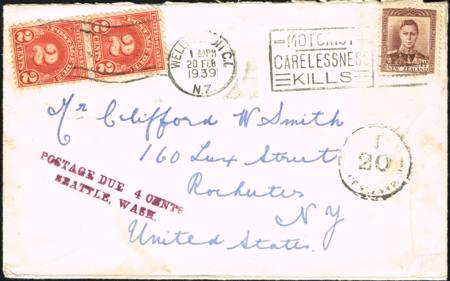 WELLINGTON C.I.
1 30PM
20 FEB
1939
N.Z.
MOTORIST
CARELESSNESS
KILLS
NEW ZEALAND
2
2
Mr Clifford W Smith
160 Lux Street
Rochester
N Y
United States.
POSTAGE DUE 4 CENTS
SEATTLE, WASH.
T
20